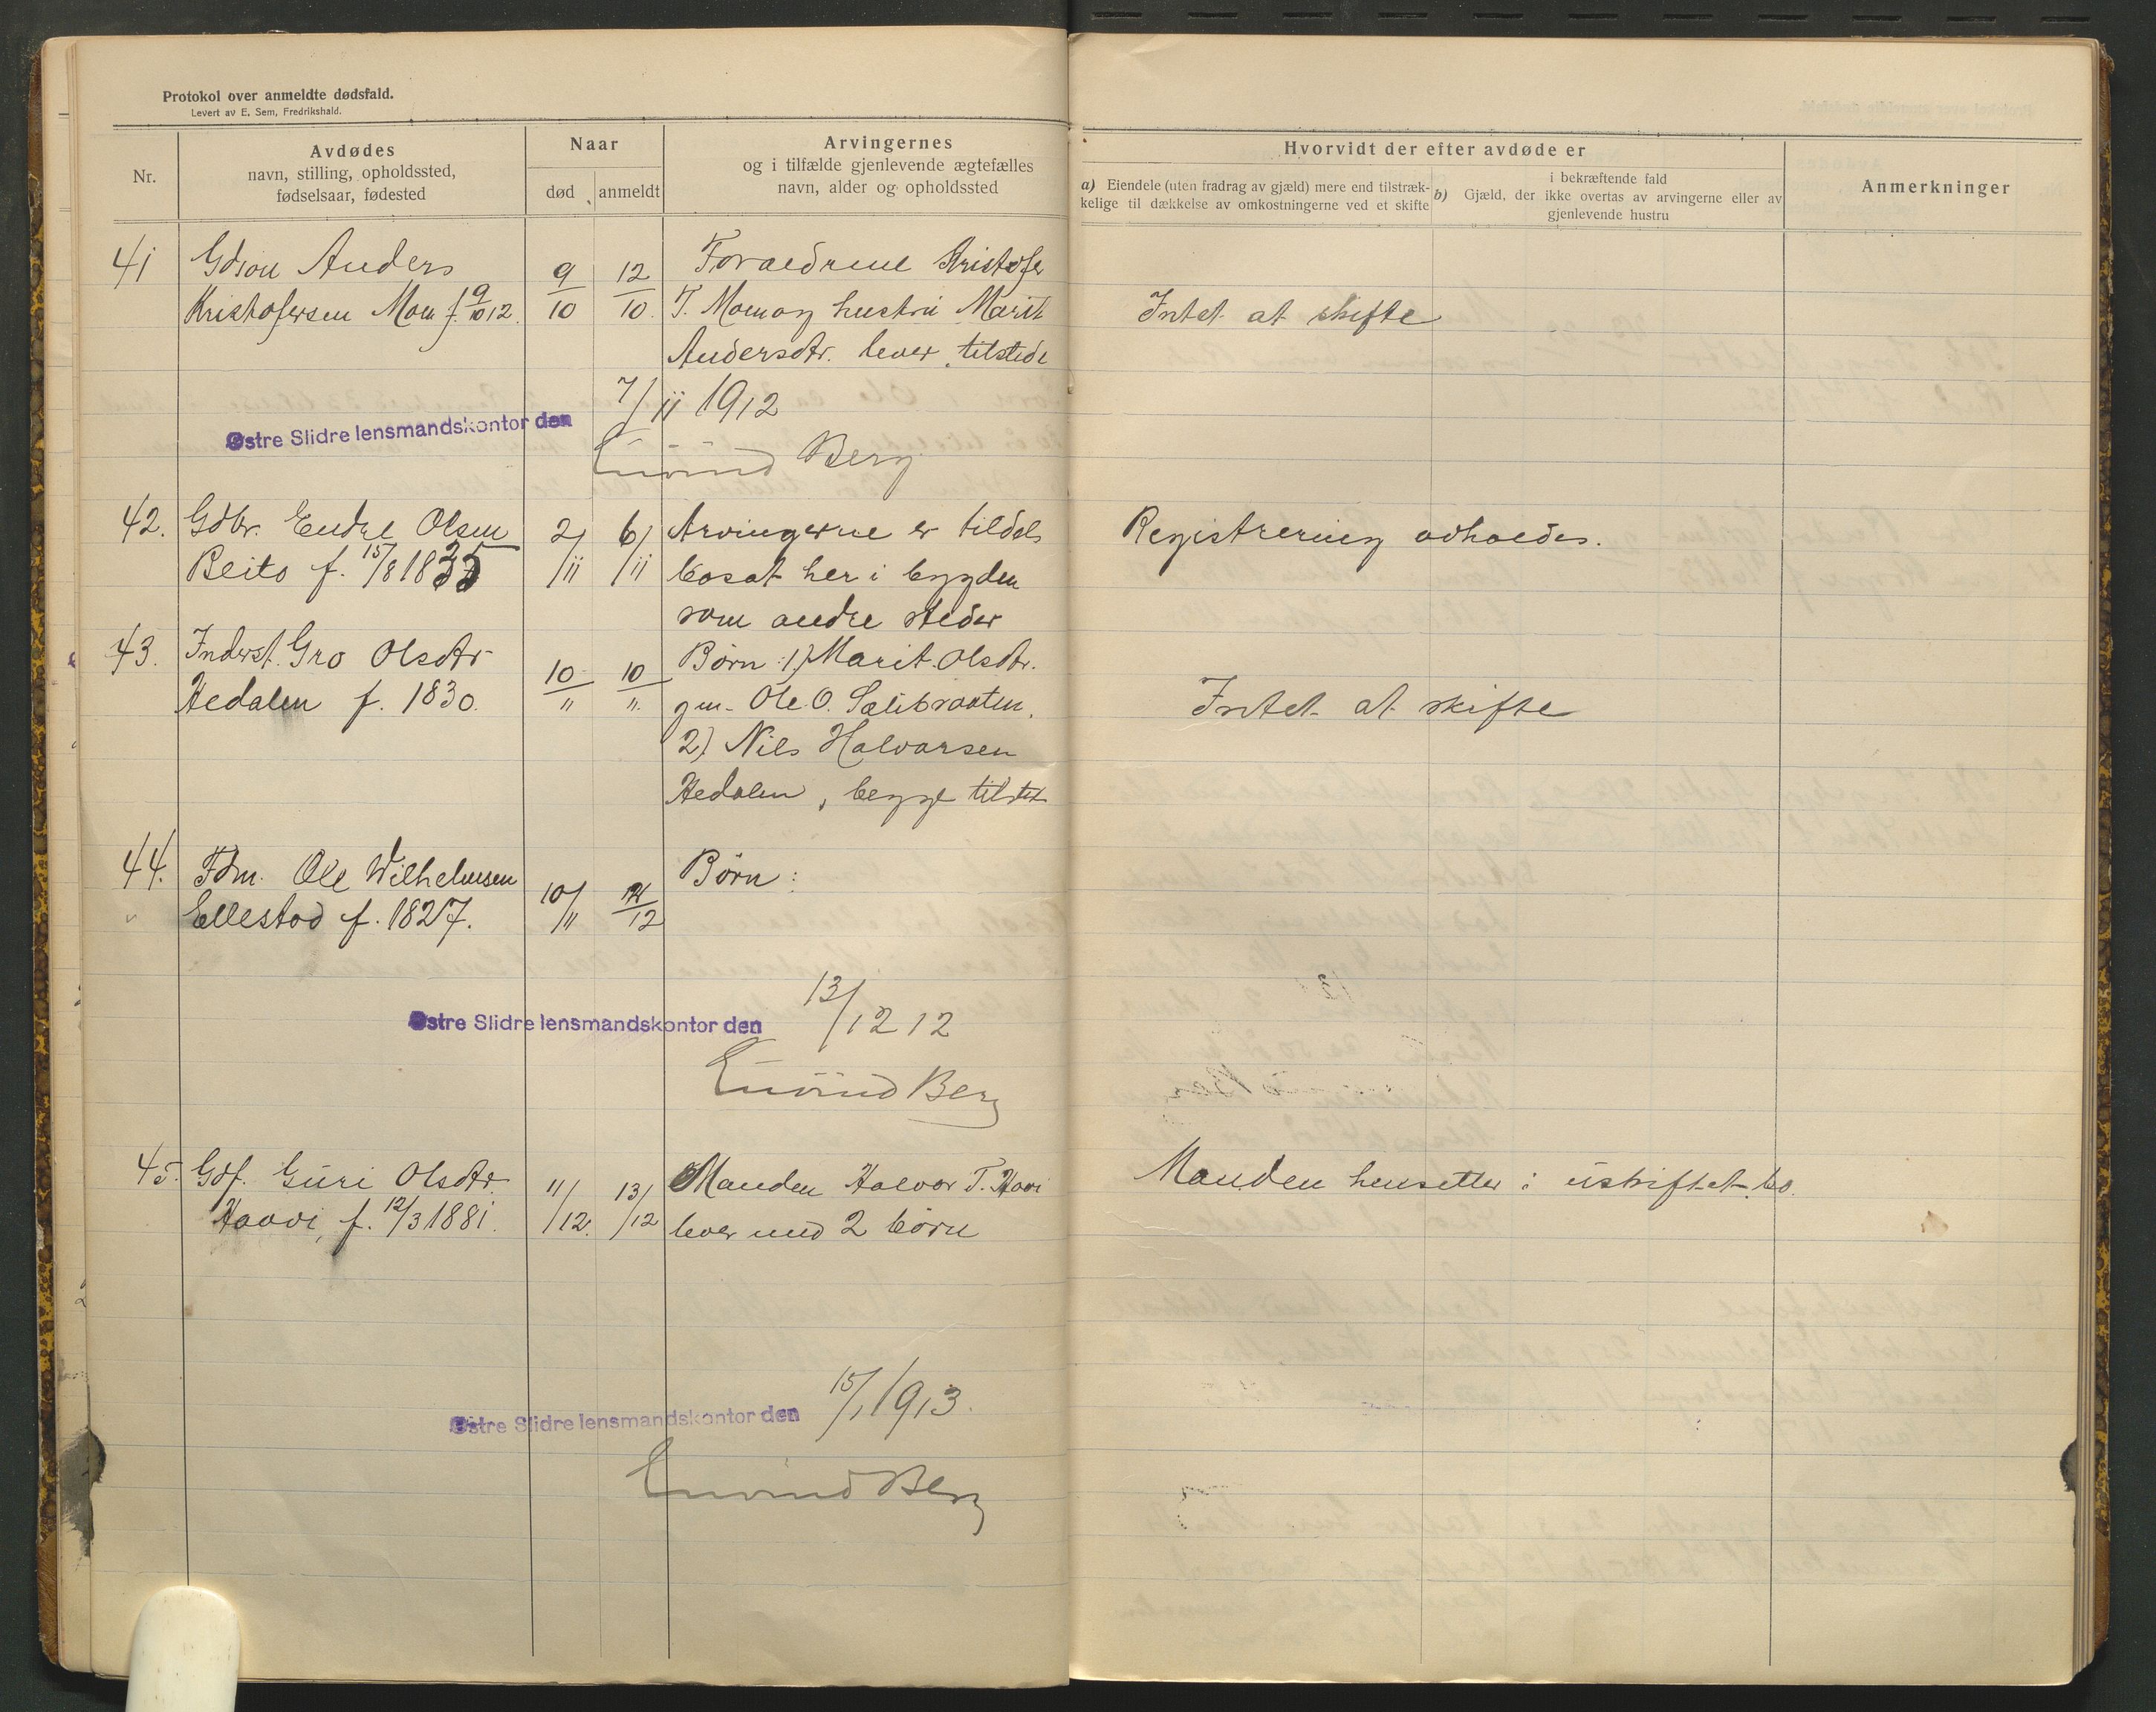 Protokol over anmeldte dødsfald.
Levert av E. Sem, Fredrikshald.
Nr.
Avdødes
navn, stilling, opholdssted,
fødselsaar, fødested
Naar
død
anmeldt
Arvingernes
og i tilfælde gjenlevende ægtefælles
navn, alder og opholdssted
Hvorvidt der efter avdøde er
a) Eiendele (uten fradrag av gjæld) mere end tilstræk-
kelige til dækkelse av omkostningerne ved et skifte
i bekræftende fald
b) Gjæld, der ikke overtas av arvingerne eller av
gjenlevende hustru
Anmerkninger
41 Gdsøn Anders
Kristofersen Moen f. 9/10 12.
9/10 12/10.
Foraeldrene Kristofer
T. Moen og hustru Marit
Andersdtr. lever tilstede
Intet at skifte
Østre Slidre lensmandskontor den 7/11 1912
Eivind Berg
42. Gdbr. Endre Olsen
Beito f. 15/8 1835
2/11 6/11
Arvingerne er tildels
bosat her i bygden
som andre steder
Registrering avholdes.
43. Inderst. Gro Olsdtr
Hedalen f. 1830.
10/" 10/".
Børn: 1) Marit Olsdtr.
gm. Ole O. Sælibraaten.
2) Nils Halvorsen
Hedalen, begge tilsted
Intet at skifte
44. Fdm. Ole Wilhelmsen
Ellestad f. 1827.
10/11 12/12
Børn:
Østre Slidre lensmandskontor den 13/12 12
Eivind Berg
45. Gdf. Guri Olsdtr.
Haavi, f. 12/3 1881.
11/12. 13/12
Manden Halvor T. Haavi
lever med 2 børn
Manden hensitter i uskiftet bo.
Østre Slidre lensmandskontor den 15/1 1913.
Eivind Berg